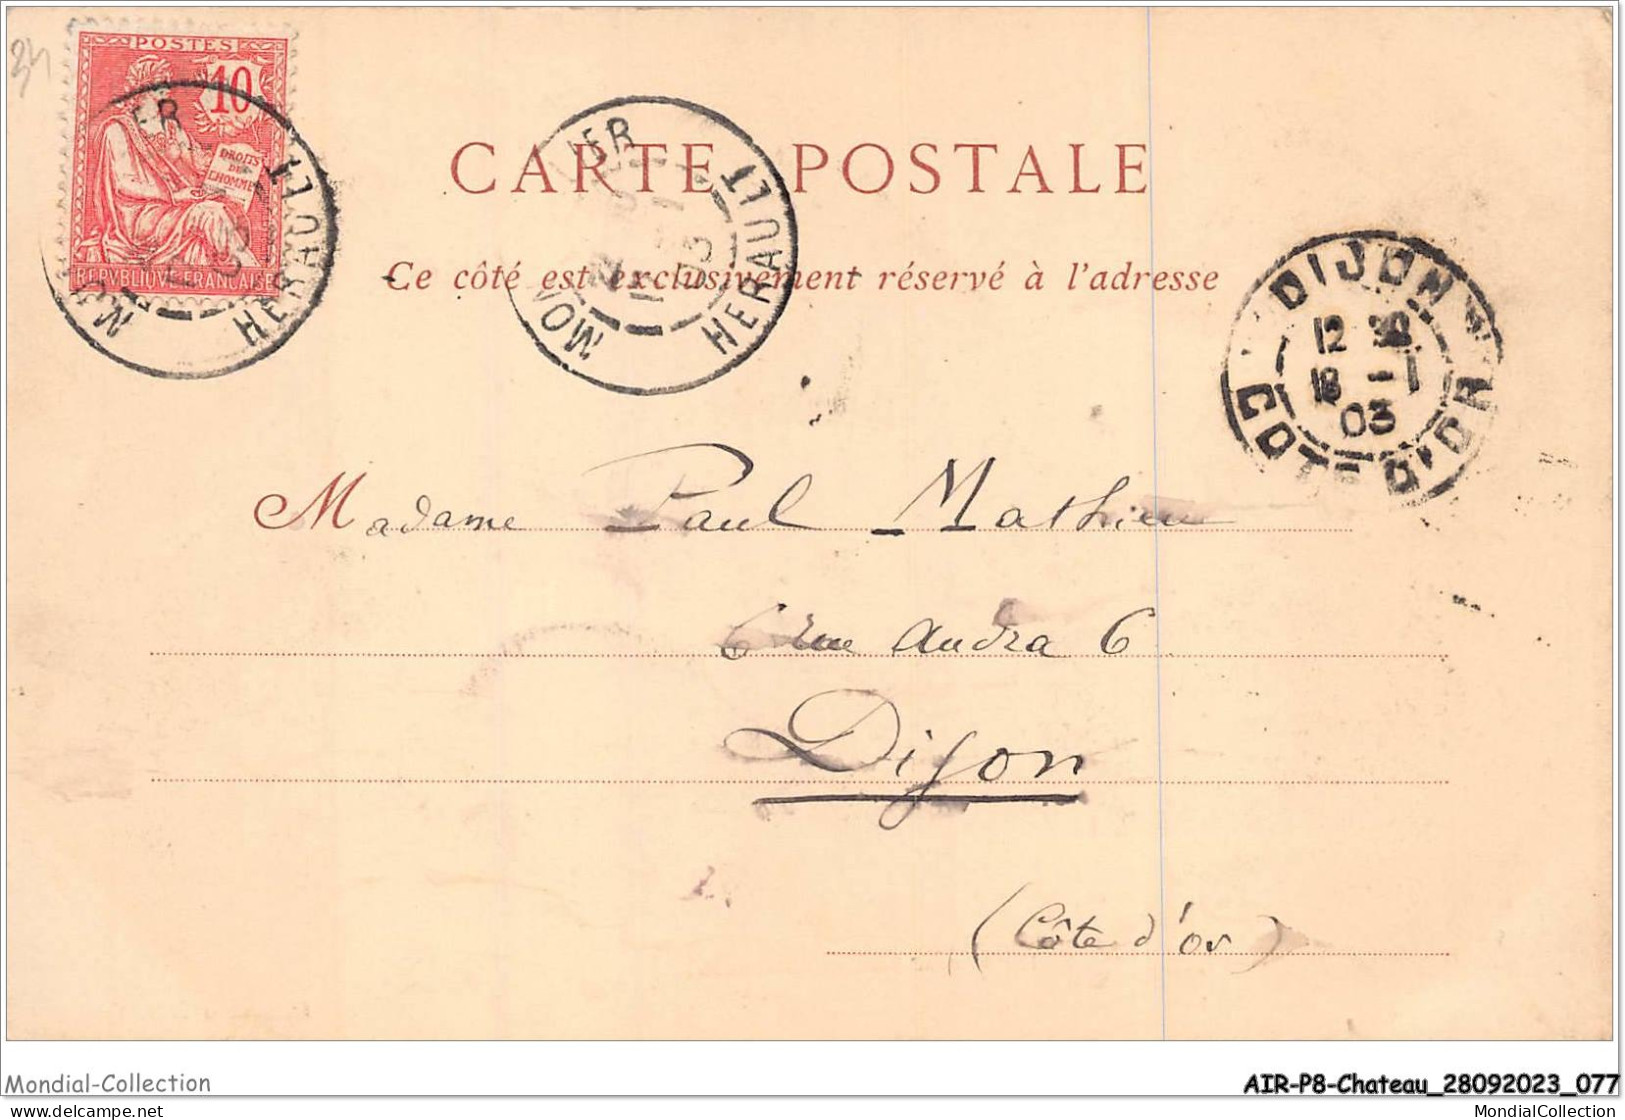 34
POSTES
10
DROITS
DE
L'HOMME
REPVBLIQVE FRANCAISE
HERAULT
03
CARTE POSTALE
HERAULT
03
Ce côté est exclusivement réservé à l'adresse
DIJON
12 30
18 -1
03
COTE D'OR
Madame Paul Mathieu
6 rue Audra 6
Dijon
(Côte d'or)
Mondial-Collection
AIR-P8-Chateau_28092023_077
www.delcampe.net
MondialCollection